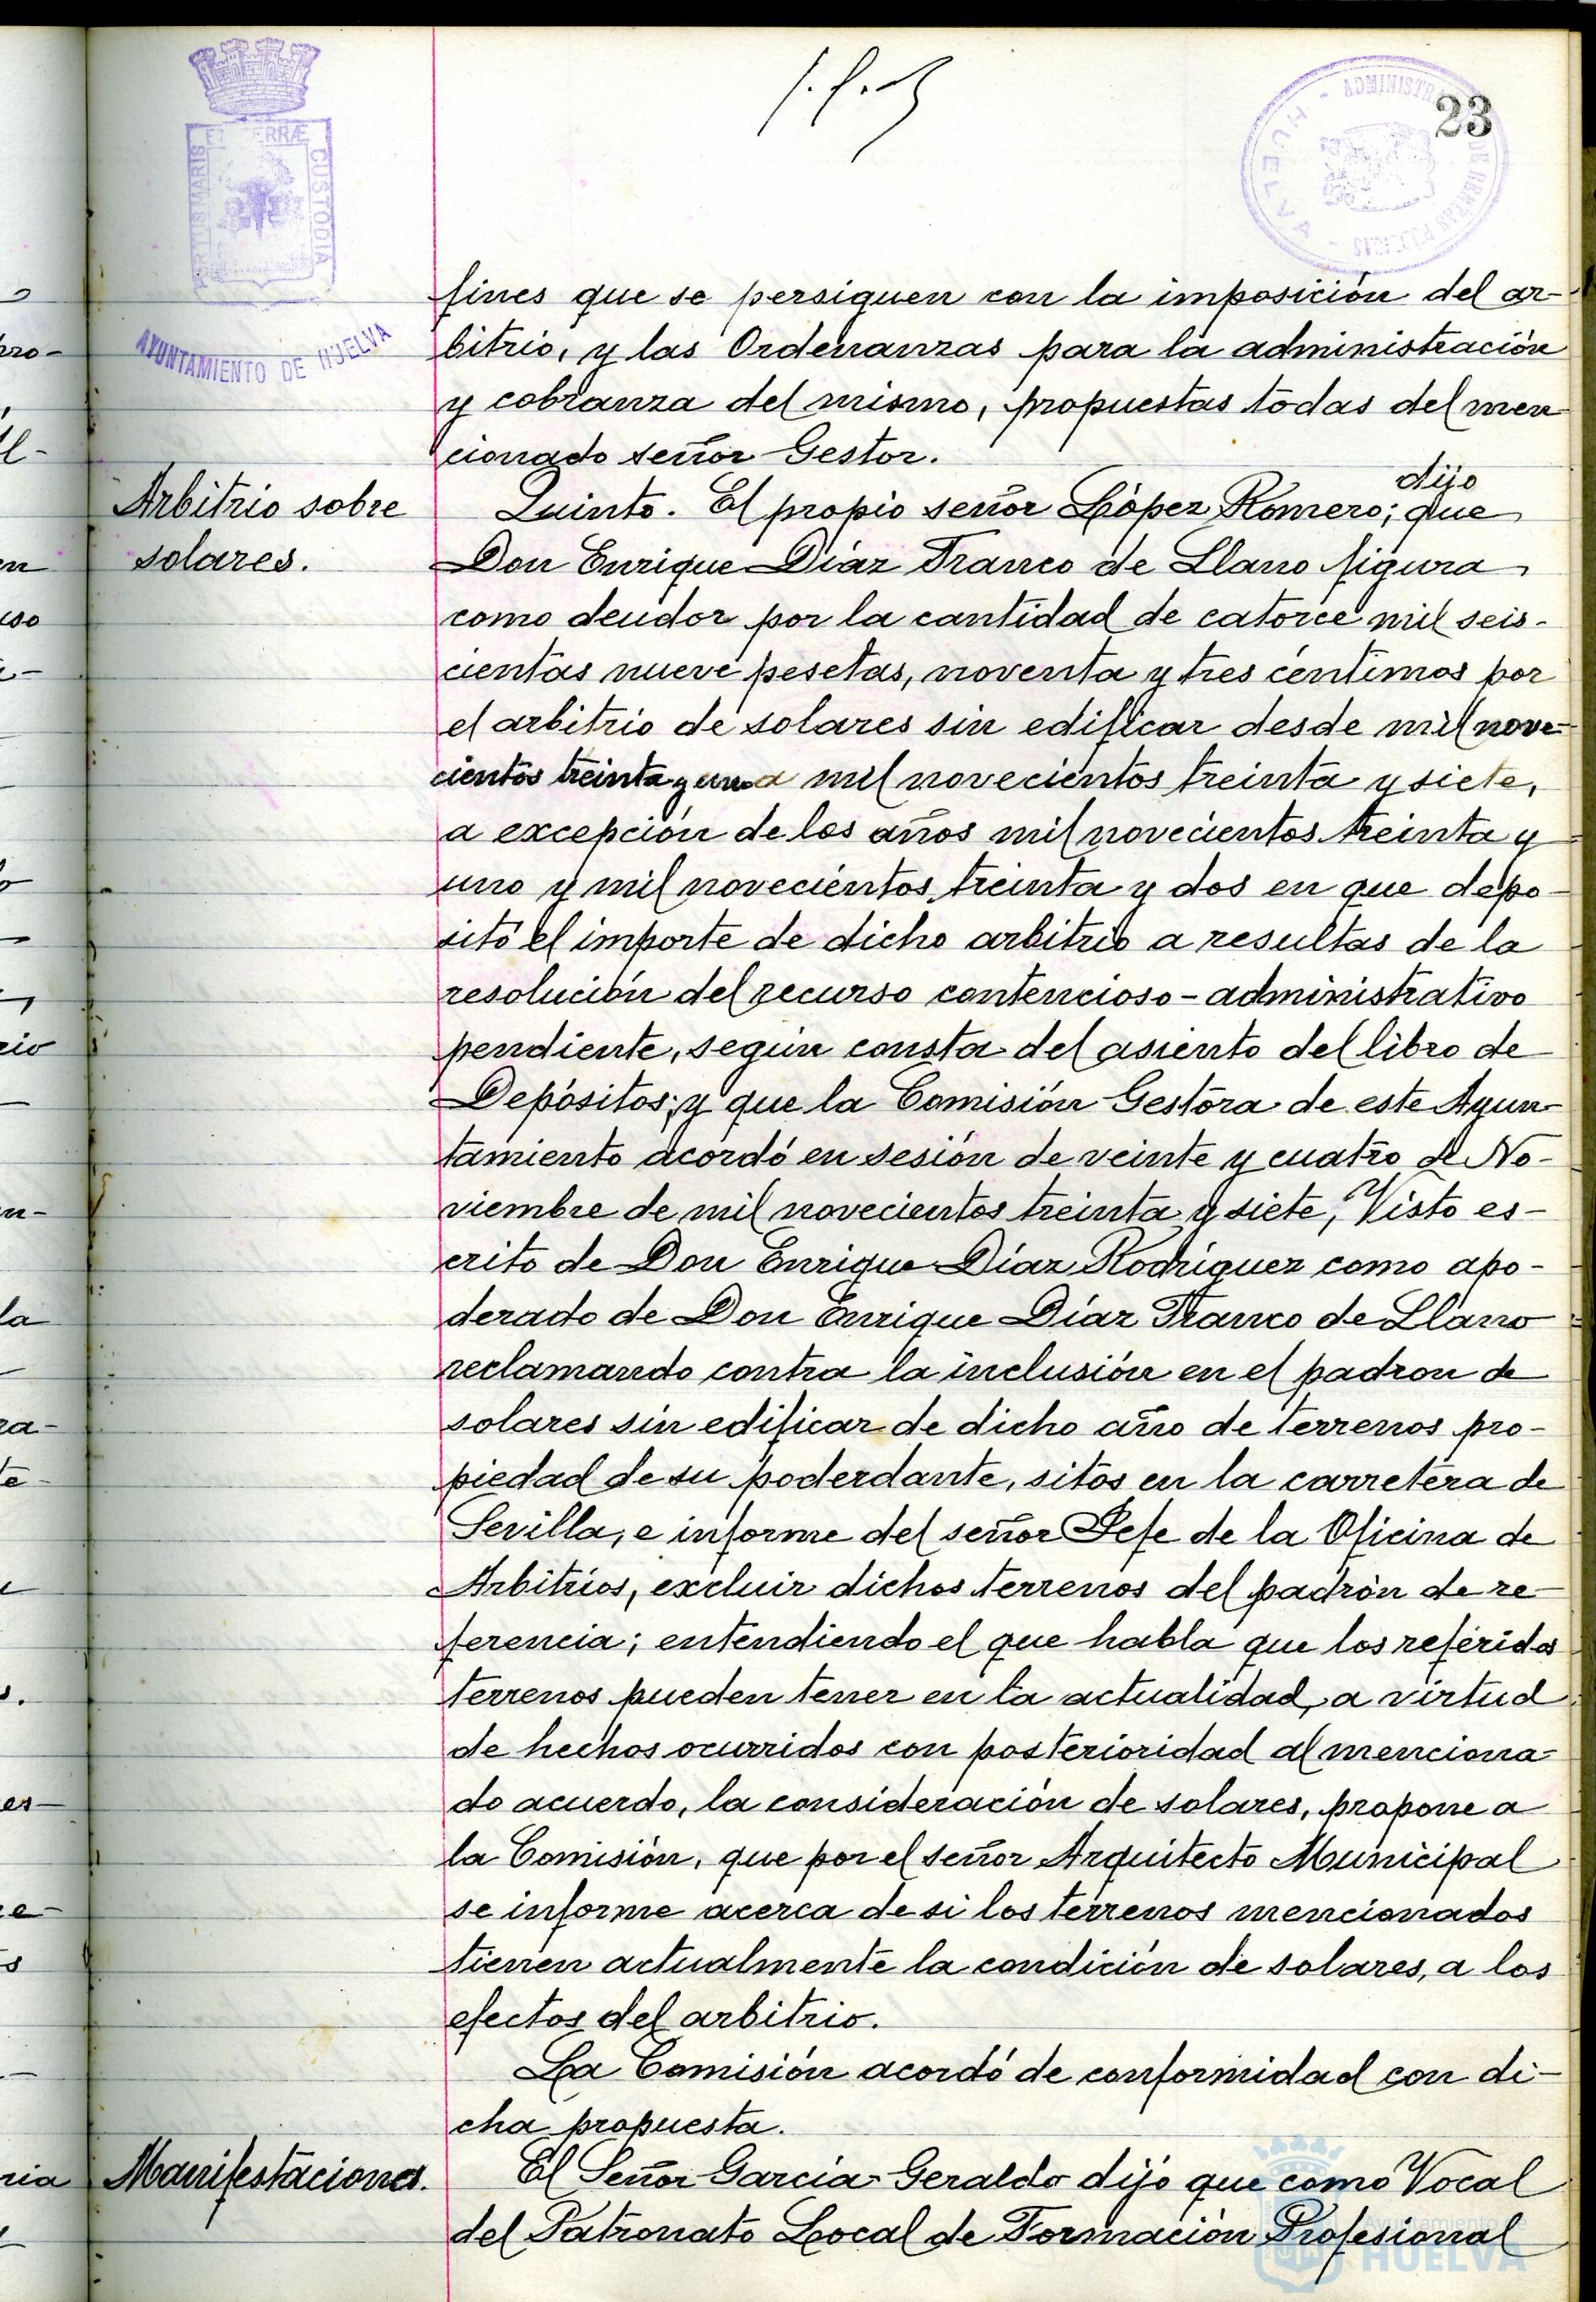 23
PORTUS MARIS ET TERRÆ CUSTODIA
AYUNTAMIENTO DE HUELVA
ADMINISTR
DE RENTAS PUBLICAS
HUELVA
fines que se persiguen con la imposición del ar-
bitrio, y las Ordenanzas para la administración
y cobranza del mismo, propuestas todas del men
cionado señor Gestor.
Arbitrio sobre
solares.
dijo
Quinto. El propio señor López Romero; que
Don Enrique Díaz Franco de Llano figura
como deudor por la cantidad de catorce mil seis-
cientas nueve pesetas, noventa y tres centimos por
el arbitrio de solares sin edificar desde mil nove-
cientos treinta y uno a mil novecientos treinta y siete,
a excepción de los años mil novecientos treinta y
uno y mil novecientos treinta y dos en que depo-
sitó el importe de dicho arbitrio a resultas de la
resolución del recurso contencioso-administrativo
pendiente, según consta del asiento del libro de
Depósitos; y que la Comisión Gestora de este Ayun-
tamiento acordó en sesión de veinte y cuatro de No-
viembre de mil novecientos treinta y siete, Visto es-
crito de Don Enrique Díaz Rodríguez como apo-
derado de Don Enrique Díaz Franco de Llano
reclamando contra la inclusión en el padron de
solares sin edificar de dicho año de terrenos pro-
piedad de su poderdante, sitos en la carretera de
Sevilla, e informe del señor Jefe de la Oficina de
Arbitrios, excluir dichos terrenos del padrón de re-
ferencia; entendiendo el que habla que los referidos
terrenos pueden tener en la actualidad, a virtud
de hechos ocurridos con posterioridad al menciona-
do acuerdo, la consideración de solares, propone a
la Comisión, que por el señor Arquitecto Municipal
se informe acerca de si los terrenos mencionados
tienen actualmente la condición de solares, a los
efectos del arbitrio.
La Comisión acordó de conformidad con di-
cha propuesta.
Manifestaciones.
El Señor García Geraldo dijo que como Vocal
del Patronato Local de Formación Profesional
Ayuntamiento de
HUELVA